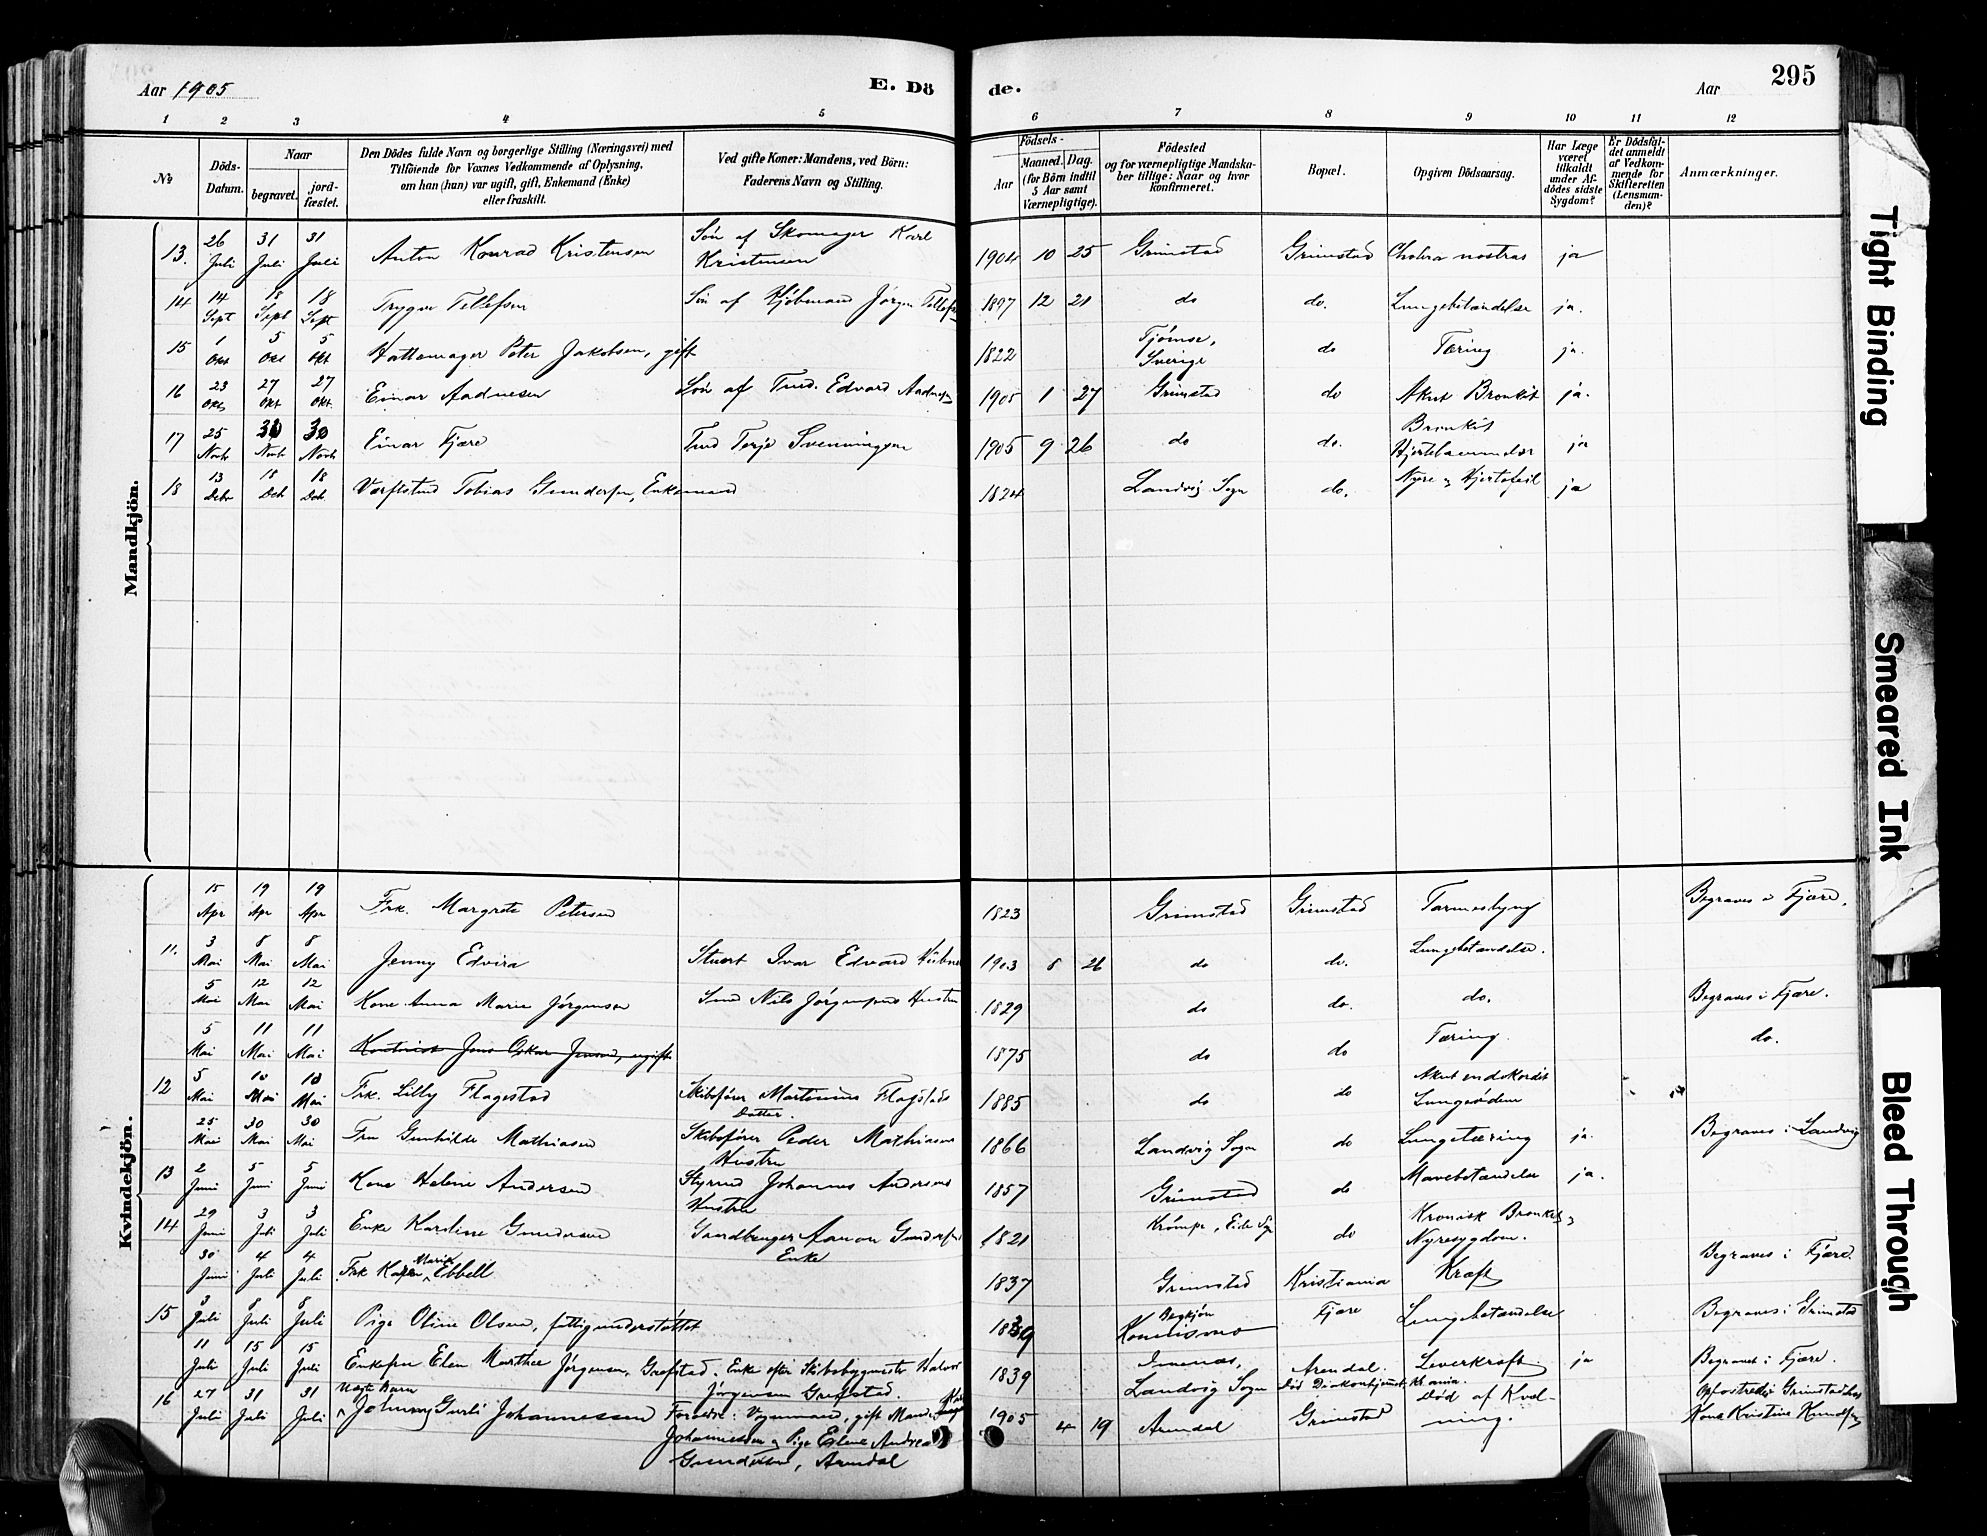 Aar 1905
E. Dö
de.
Aar
295
1 2 3 4 5 6 7 8 9 10 11 12
№
Döds-
Datum.
Naar
begravet.
jord-
fæstet.
Den Dödes fulde Navn og borgerlige Stilling (Næringsvei) med
Tilföiende for Voxnes Vedkommende af Oplysning,
om han (hun) var ugift, gift, Enkemand (Enke)
eller fraskilt.
Ved gifte Koner: Mandens, ved Börn:
Faderens Navn og Stilling.
Födsels-
Aar
Maaned. Dag.
(for Börn indtil
5 Aar samt
Værnepligtige).
Födested
og for værnepligtige Mandska-
ber tillige: Naar og hvor
konfirmeret.
Bopæl.
Opgiven Dödsaarsag.
Har Læge
været
tilkaldt
under Af-
dödes sidste
Sygdom?
Er Dödsfal-
det anmeldt
af Vedkom-
mende for
Skifteretten
(Lensman-
den)?
Anmærkninger.
Mandkjön.
13. 26 Juli 31 Juli 31 Juli Anton Konrad Kristensen Sön af Skomager Karl Kristensen 1904 10 25 Grimstad Grimstad Cholera nostras ja
14 14 Sept 18 Sept 18 Sept Trygve Tellefsen Sön af Kjöbmand Jörgen Tellefsen 1897 12 21 do do. Lungebetændelse ja.
15 1 Okt 5 Okt 5 Okt Hattemager Peter Jakobsen, gift 1822 Sverige do Tæring ja.
16 23 Okt 27 Okt 27 Okt Einar Aadnesen Sön af Tmd. Edvard Aadnesen 1905 1 27 Grimstad do Akut Bronkit ja.
17 25 Novb 30 Novb 30 Novb Einar Fjære Tmd Terje Svenningsen 1905 9 26 do do. Bronkit ja
18 13 Deb 18 Deb 18 Deb Værftstmd Tobias Gundersen, Enkemand 1824 Landvig Sogn do. Nyre og Hjertefeil ja
Kvindekjön.
15 Apr 19 Apr 19 Apr Frk. Margrete Petersen 1823 Grimstad Grimstad Begraves i Fjære.
11. 3 Mai 8 Mai 8 Mai Jenny Edvira Stuert Ivar Edvard 1903 8 26 do do. Lungebetændelse.
5 Mai 12 Mai 12 Mai Kone Anna Marie Jörgensen Smd Nils Jörgensens Hustru 1829 do do. do. Begraves i Fjære.
5 Mai 11 Mai 11 Mai Kontorist Jens Oskar Jensen, ugift 1875 do do Tæring. do.
12 5 Mai 10 Mai 10 Mai Frk. Lilly Flagestad Skibsförer Martinius Flagstads Datter. 1885 do do Akut endokordit Lungeödem
25 Mai 30 Mai 30 Mai Fru Gunhilde Mathiasen Skibsförer Peder Mathiasens Hustru 1866 Landvig Sogn do Lungetæring ja. Begraves i Landvig
13 2 Juni 5 Juni 5 Juni Kone Helene Andersen Styrmd Johannes Andersens Hustru 1857 Grimstad do Mavebetændelse ja.
14 29 Juni 3 Juli 3 Juli Enke Karoline Gundersen Aaron Gundersens Enke 1821 Krömpe, Eide Sogn do Kronisk Bronkit og Nyresygdom.
30 Juni 4 Juli 4 Juli Frk Karen Marie Ebbell 1837 Grimstad Kristiania Kræft Begraves i Fjære.
15 3 Juli 8 Juli 8 Juli Pige Oline Olsen, fattigunderstöttet 1839 Fjære Lungebetændelse Begraves i Grimstad
11 Juli 15 Juli 15 Juli Enkefru Elen Marthea Jörgensen, Grefstad. Enke efter Skibsbygmester Halvor Jörgensen Grefstad. 1839 Landvig Sogn Arendal. Död Diakonhjemmet Kr.ania. Leverkræft ja Begravet i Fjære.
16 27 Juli 31 Juli 31 Juli Uægte Barn Johanna Gurli Johannessen Forældre: Vognmand, gift Mand Johannessen og Pige Elene Andrea Gundersen, Arendal 1905 4 19 Arendal Grimstad Död af Kvæl-ning. Opfostredes Grimstad hos Kone Kristine Knudsen
Tight Binding
Smeared Ink
Bleed Through